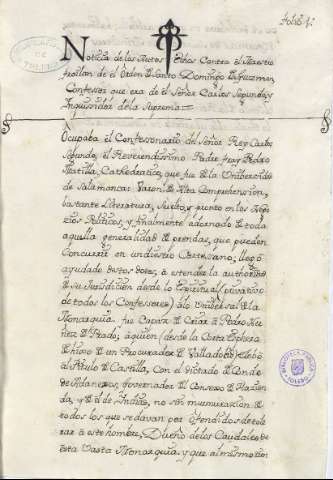 Folio 1.
Noticia de los Autos hechos Contra el Maestro
froilan de el Orden de Santo Domingo de Guzman,
Confessor que era de el Señor Carlos Segundo, e
Inquisidor de la Suprema
Ocupaba el Confessonario del Señor Rey Carlos
Segundo, el Reverendissimo Padre fray Pedro
Matilla, Cathedratico, que fue de la Universidad
de Salamanca: Varon de Alta Comprehension,
bastante Literatura, Suelto, y pronto en los Nego
zios Politicos, y finalmente adornado de toda
aquella generalidad de prendas, que pueden
Concurrir en un diestro Cortesano; llegó
ayudado destos dotes, a estender la authoridad
de su Jurisdicion desde lo Espiritual (privativo
de todos los Confessores) álo Universal de la
Monarquia: fue Capaz de Criar a Pedro Nu
ñez de Prado; á quien (desde la Corta Esphera
de hijo de un Procurador de Valladolid) elebó
al Titulo de Castilla, con el dictado de Conde
de Adanero, Governador del Consexo de Hazien
da, y de el de Indias, no sin murmurazion de
todos los que se davan por ofendidos de tole
rar a este hombre, Dueño de los Caudales de
esta Vasta Monarquia, y que al mismo tiem
BIBLIOTECA PUBLICA
TOLEDO